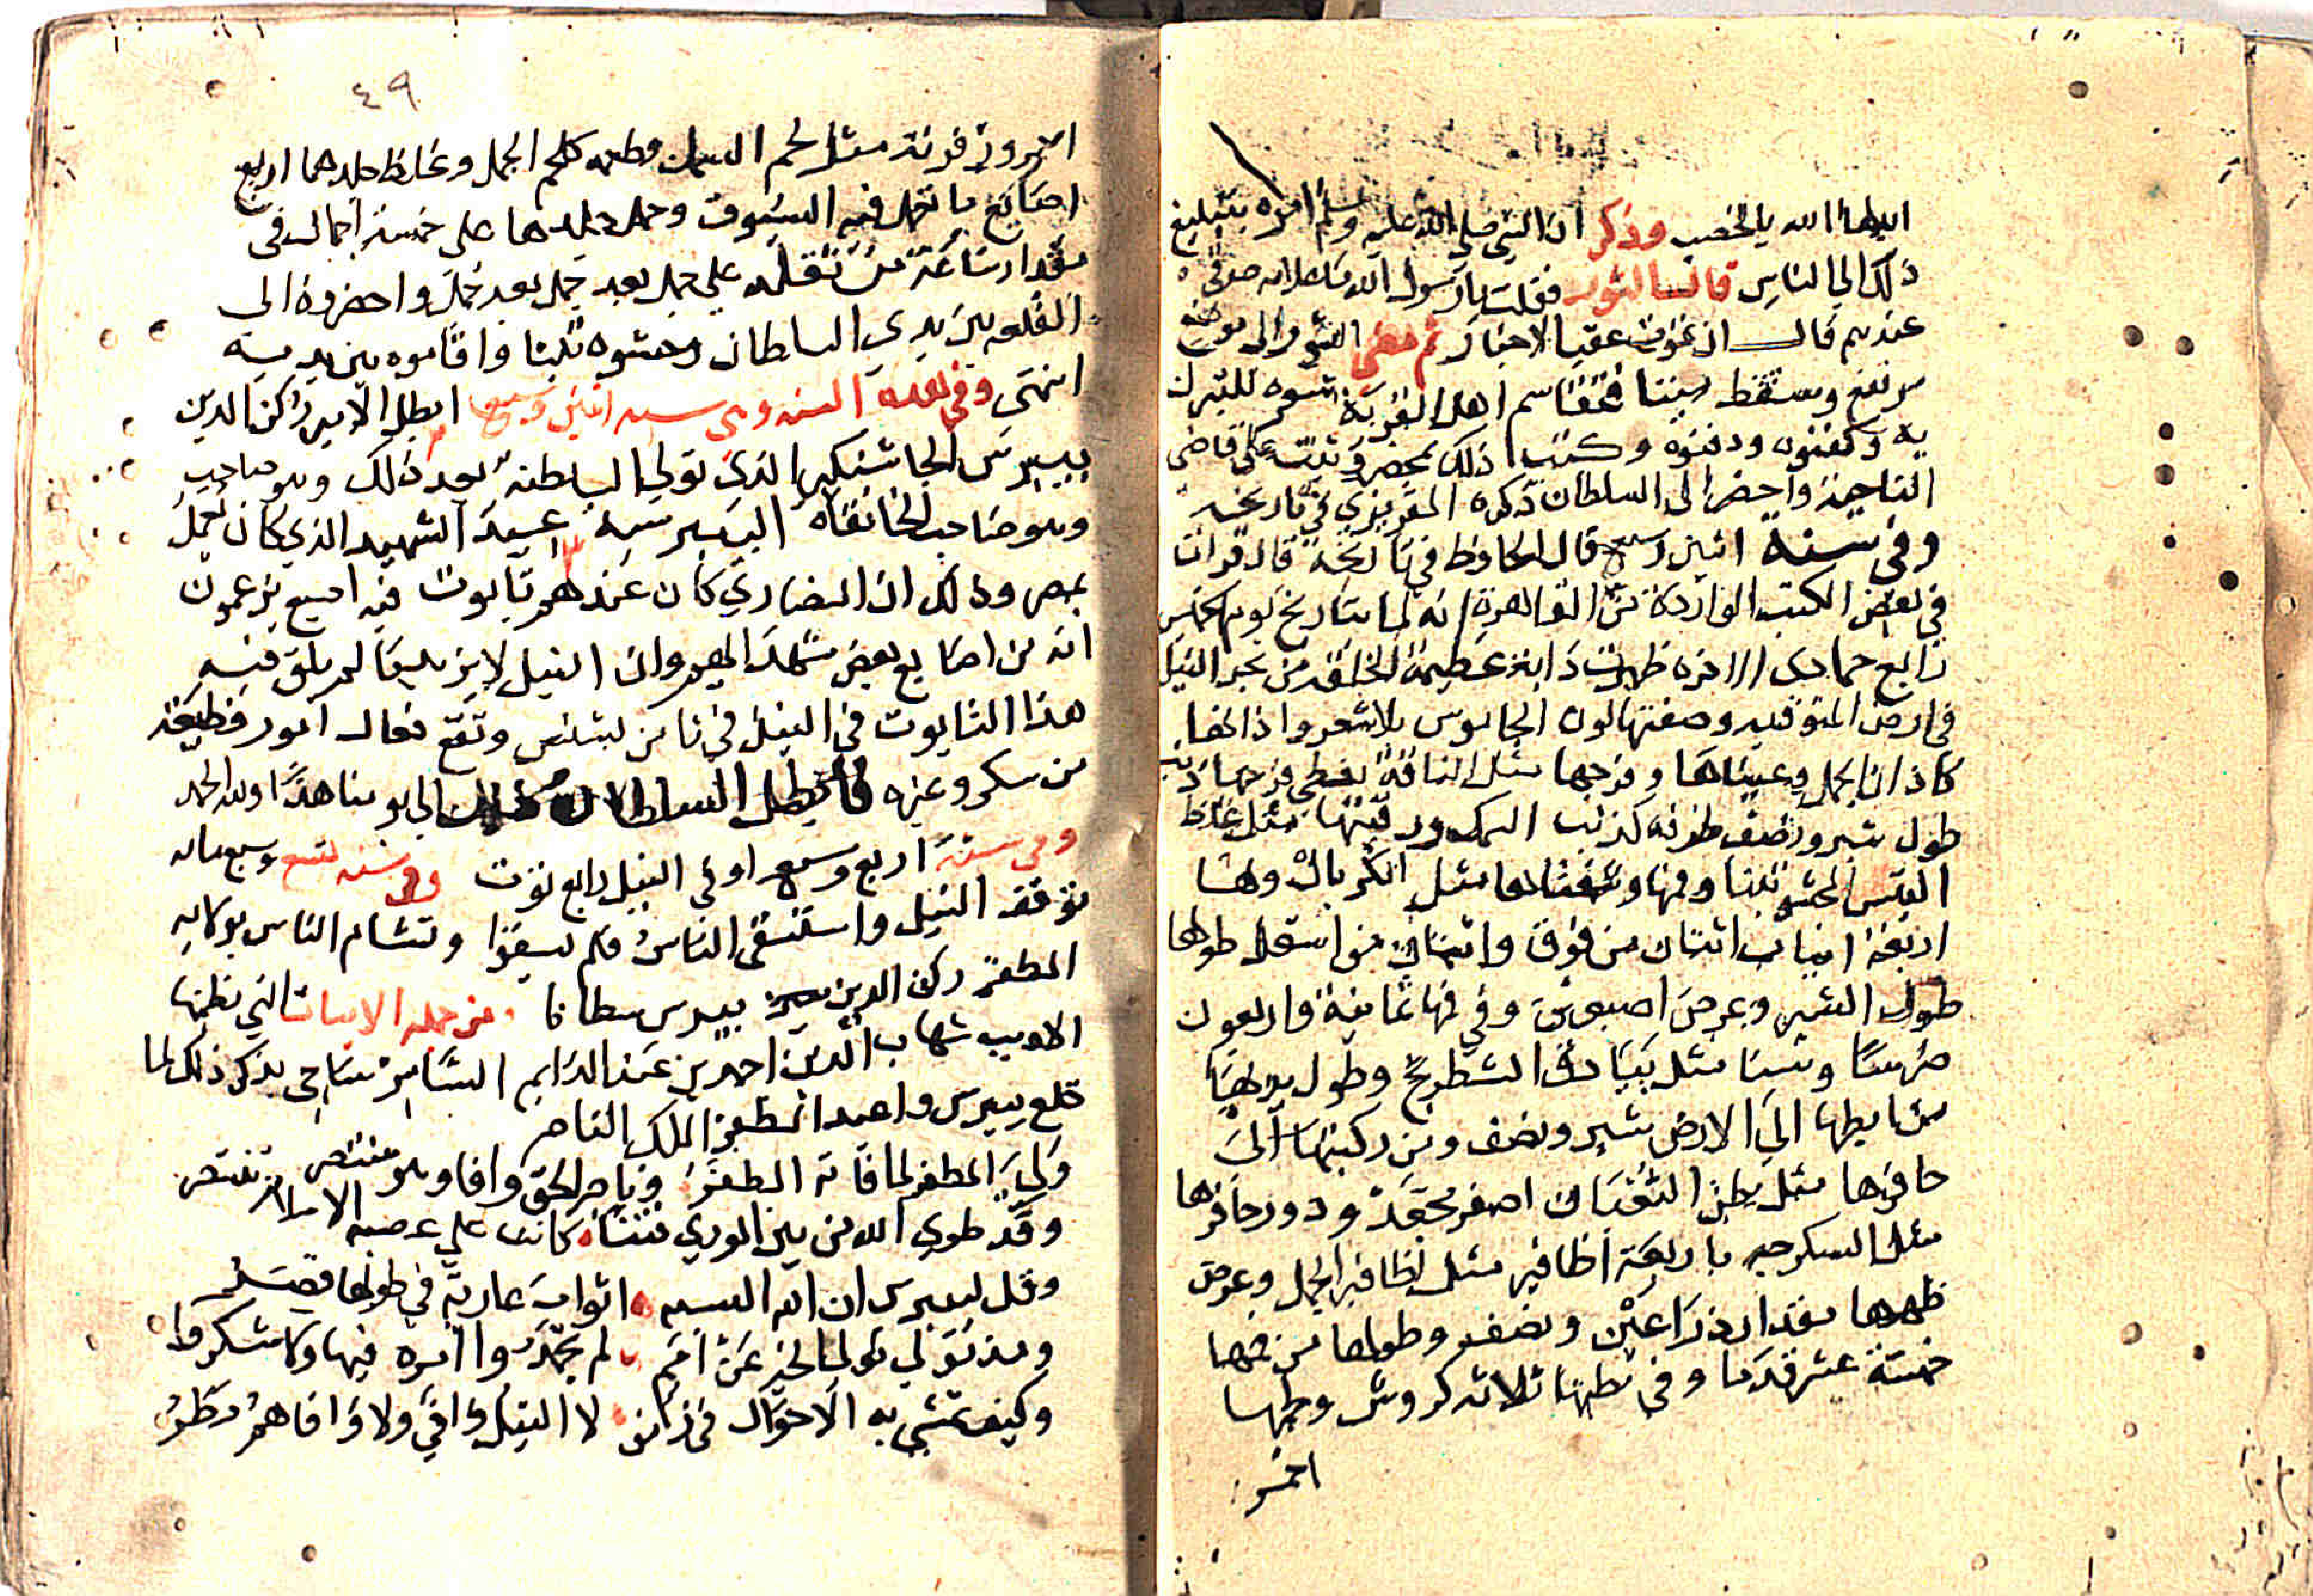 ابدلها الله بالخصب وذكر ان النبي صلى الله عليه وسلم امره بتبليغ
ذلك الي الناس قال الثور فقلت يا رسول الله ما علامة صدقي
عندهم قال ان تموت عقيب الاخبار ثم مضى الثور الى موضع
مرتفع وسقط ميتا فتقاسم اهل القرية شعره للتبرك
به وكفنوه ودفنوه وكتب ذلك بمحضر وثبت على قاضي
الناحية واحضر الى السلطان ذكره المقريزي في تاريخه
وفي سنة اثنين وسبع قال الحافظ في تاريخه قال قرات
في بعض الكتب الواردة من القاهرة انه لما بتاريخ يوم الخميس
رابع جمادى الاخره ظهرت دابة عظيمة الخلقة من بحر النيل
في ارض المنوفيه وصفتها لون الجاموس بلا شعر واذانها
كاذان الجمل وعيناها وفرجها مثل الناقة يغطي فرجها ذنب
طول شبر ونصف طرفه كذنب السمك ورقبتها مثل غلظ
التيس المحشو تبنا وفمها وشفتاها مثل الكربال ولها
اربعة انياب اثنان من فوق واثنان من اسفل طولها
طول الشبر وعرض اصبعين وفي فمها ثمانية واربعون
ضرسا وسنا مثل بيادق الشطرنج وطول يديها
من باطنها الي الارض شبر ونصف ومن ركبتها الى
حافرها مثل بطن الثعبان اصفر مجعد ودور حافرها
مثل السكرجه باربعة اظافير مثل اظافير الجمل وعرض
ظهرها مقدار ذراعين ونصف وطولها من فمها
خمسة عشر قدما وفي بطنها ثلاثة كروش ولحمها
احمر
٤٩
احمر وزفرته مثل لحم السمك وطعمه كلحم الجمل وغلظ جلدها اربع
اصابع ما تعمل فيه السيوف وحمل جلدها على خمسة اجمال في
مقدار ساعة من ثقله علي جمل بعد جمل بعد جمل واحضروه الى
القلعه بين يدي السلطان وحشوه تبنا واقاموه بين يديه
انتهى وفي هذه السنه وهي سنه اثنين وسبع ابطل الامير ركن الدين
بيبرس الجاشنكير الذي تولي السلطنة بعد ذلك وهو صاحب
وهو صاحب الخانقاه البيبرسيه عيد الشهيد الذي كان يعمل
بمصر وذلك ان النصاري كان عندهم تابوت فيه اصبع يزعمون
انه من اصابع بعض شهدايهم وان النيل لا يزيد ما لم يلق فيه
هذا التابوت في النيل في ثامن بشنس وتقع فعال امور فظيعة
من سكر وغيره فابطل السلطان ذلك الي يومنا هذا ولله الحمد
وفي سنة اربع وسبع اوفي النيل رابع توت وفي سنه تسع وسبع مايه
توقف النيل واستسقى الناس فلم يسقوا وتشام الناس بولاية
المظفر ركن الدين بيبرس سلطانا ومن جمله الابيات التي نظمها
الاديب شهاب الدين احمد بن عبد الدايم الشارمساحي يذكر ذلك لما
خلع بيبرس واعيد الملك الناصر
ولي المظفر لما فاته الظفر وناصر الحق وافا وهو منتصر
وقد طوي الله من بين الوري فتنا كانت علي عصبه الاسلام تنتصر
وقل لبيبرس ان الله البسه اثواب عارية في طولها قصر
ومذ تولي تولى الخير عن امم لم يحمدوا امره فيها ولا شكروا
وكيف تمشي به الاحوال في زمن لا النيل وافي ولا وافاهم مطر